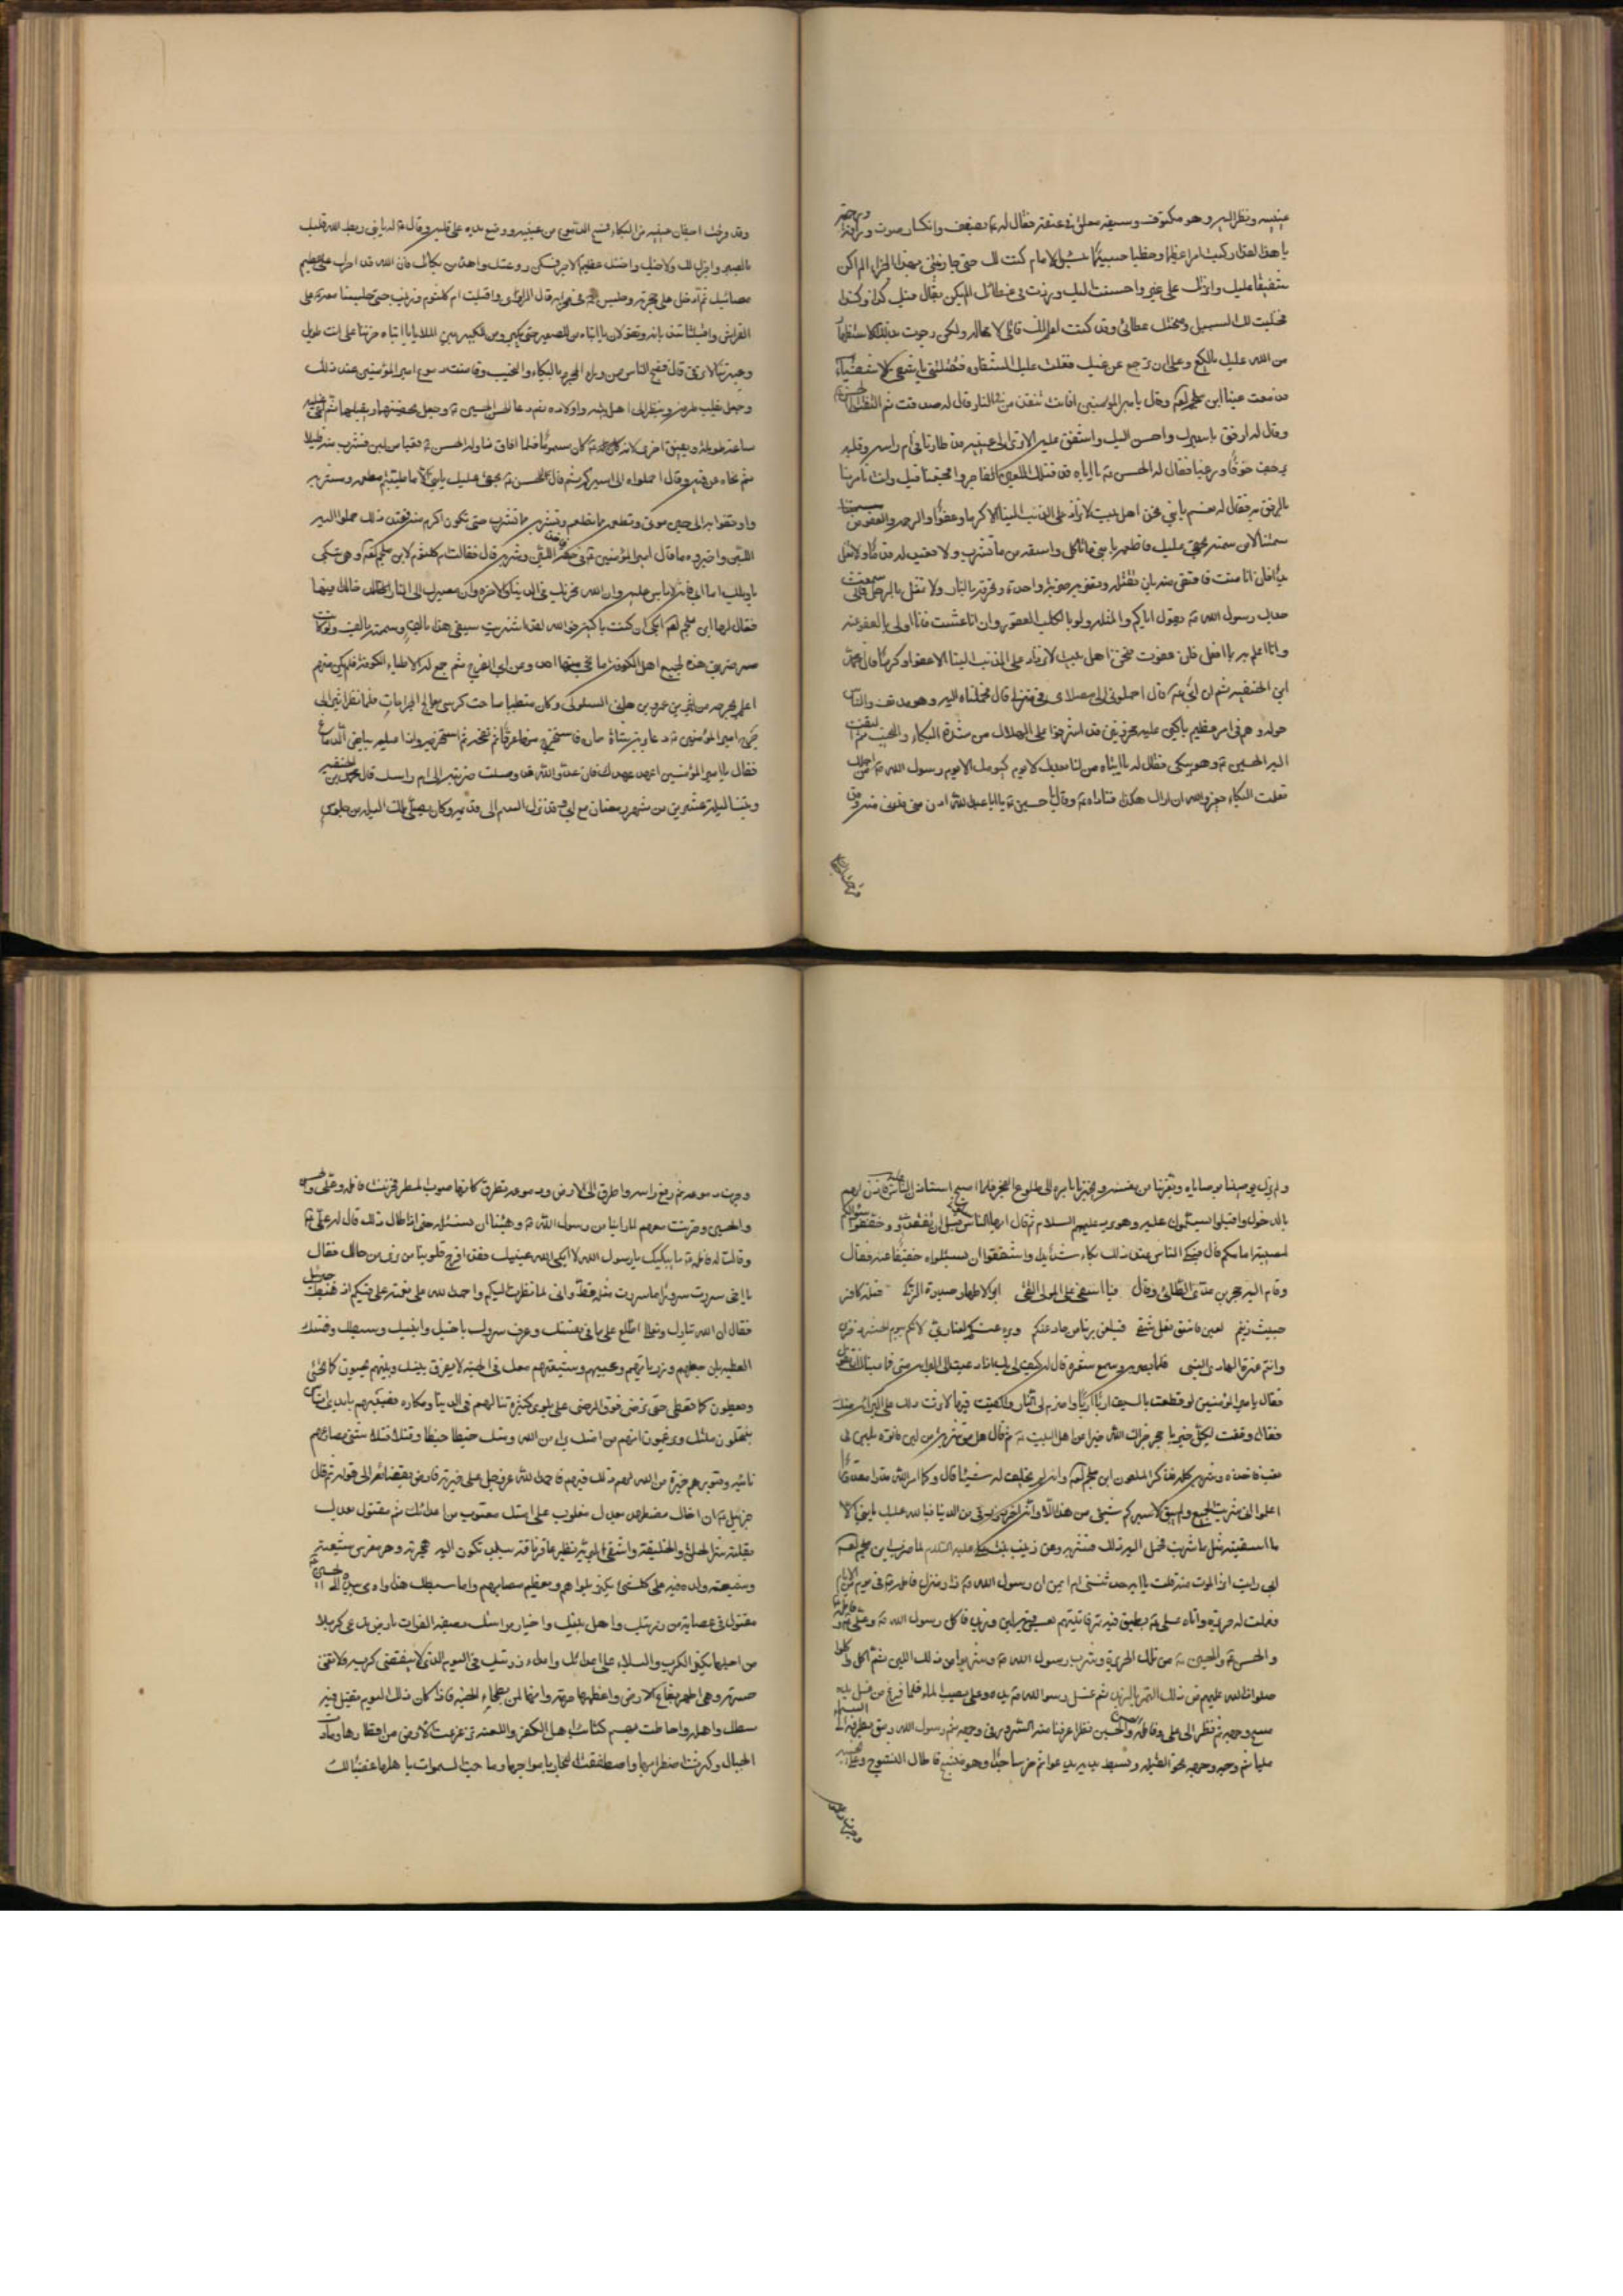 عينيه ونظر اليه وهو مكتوف وسيفه معلق في عنقه فقال له بضعف وانكسار صوت ورأفة ورحمة
يا هذا لقد ركبت امرا عظيما وخطبا جسيما بئس الامام كنت لك حتى جازيتني بهذا الجزاء الم اكن
شفيقا عليك واثرتك على غيرك واحسنت اليك وزدت في عطائك الم يكن يقال فيك كذا وكذا
فخليت لك السبيل ومنحتك عطائي وقد كنت اعلم انك قاتلي لا محالة ولكن رجوت بذلك الاستظهار
من الله عليك يا لكع وعلى ان ترجع عن غيك فغلبت عليك الشقاوة فقتلتني يا شقي الاشقياء
فدمعت عينا ابن ملجم لعنه وقال يا امير المؤمنين افانت تنقذ من في النار قال له صدقت ثم التفت الى الحسن
وقال له ارفق باسيرك وارحمه واحسن اليه واشفق عليه الا ترى الى عينيه قد طارتا في ام راسه وقلبه
يرجف خوفا ورعبا فقال له الحسن يا اباه قد قتلك اللعين الفاجر وافجعنا فيك وانت تامرنا
بالرفق به فقال له نعم يا بني نحن اهل بيت لا نزداد على المذنب الينا الا كرما وعفوا والرحمة والعفو من
شيمتنا لا من شيمته بحقي عليك فاطعمه يا بني مما تاكل واسقه مما تشرب ولا تقيد له قدما ولا تغل له
يدا فان انا مت فاقتص منه بان تقتله وتضربه ضربة واحدة وتحرقه بالنار ولا تمثل بالرجل فاني سمعت
جدك رسول الله يقول اياكم والمثلة ولو بالكلب العقور وان انا عشت فانا اولى بالعفو عنه
وانا اعلم بما افعل به فان عفوت فنحن اهل بيت لا نزداد على المذنب الينا الا عفوا وكرما قال محمد
ابن الحنفية ثم ان ابي قال احملوني الى مصلاي في منزلي قال فحملناه اليه وهو مدنف والناس
حوله وهم في امر عظيم باكين عليه محزونين قد اشرفوا على الهلاك من شدة البكاء والنحيب ثم التفت
اليه الحسين وهو يبكي فقال له يا ابتاه من لنا بعدك لا يوم كيومك الا يوم رسول الله من اجلك
تعلمت البكاء يعز والله ان اراك هكذا فناداه وقال يا حسين يا ابا عبد الله ادن مني فدنى منه
وقد قرحت اجفان عينيه من البكاء فمسح الدموع من عينيه ووضع يده على قلبه وقال له يا بني ربط الله قلبك
بالصبر واجزل لك ولاخوتك عظيم الاجر فسكن روعتك واهدا من بكائك فان الله قد اجرك على عظيم
مصابك ثم ادخل على حجرته وجلس في محرابه قال الراوي واقبلت ام كلثوم وزينب حتى جلستا معه على
الفراش واقبلتا تندبانه وتقولان يا ابتاه من للصغير حتى يكبر ومن للكبير بين الملا يا ابتاه حزننا عليك طويل
وعبرتنا لا ترقى قال فضج الناس من وراء الحجرة بالبكاء والنحيب وفاضت دموع امير المؤمنين عند ذلك
وجعل يقلب طرفه وينظر الى اهل بيته واولاده ثم دعا الحسن والحسين وجعل يحضنهما ويقبلهما ثم اغمي عليه
ساعة طويلة وافاق فلما افاق ناوله الحسن قعبا من لبن فشرب منه قليلا
ثم نحاه عن فيه وقال احملوه الى اسيركم ثم قال للحسن بحقي عليك يا بني الا ما طيبتم مطعمه ومشربه
وارفقوا به الى حين موتي وتطعمه مما تطعم وتسقيه مما تشرب حتى تكون اكرم منه فعند ذلك حملوا اليه
اللبن واخبروه بما قال امير المؤمنين في حقه فاخذ اللبن وشربه قال فقالت ام كلثوم لابن ملجم لعنه وهي تبكي
يا ويلك اما ابي فانه لا باس عليه وان الله مخزيك في الدنيا والاخرة وان مصيرك الى النار خالدا فيها
فقال لها ابن ملجم لعنه ابكي ان كنت باكية فوالله لقد اشتريت سيفي هذا بالف وسممته بالف ولو كانت
ضربتي هذه لجميع اهل الكوفة ما نجى منهم احد وعن ابي الفرج ثم جمع له الاطباء الكوفة فلم يكن منهم
اعلم بجرحه من اثير بن عمرو بن هاني السلولي وكان متطببا صاحب كرسي يعالج الجراحات فلما نظر اثير الى
جرح امير المؤمنين دعا برية شاة حارة فاستخرج منها عرقا ثم نفخه ثم استخرجه وادا عليه بياض الدماغ
فقال يا امير المؤمنين اعهد عهدك فان عدو الله قد وصلت ضربته الى ام راسك قال محمد بن الحنفية
وبتنا ليلة عشرين من شهر رمضان مع ابي وقد نزل السم الى قدميه وكان يصلي تلك الليلة من جلوس
ولم يزل يوصينا بوصاياه ويعزينا عن نفسه ويخبرنا بامره الى طلوع الفجر فلما اصبح استاذن الناس عليه فاذن لهم
بالدخول واقبلوا يسلمون عليه وهو يرد عليهم السلام ثم قال ايها الناس سلوني قبل ان تفقدوني وخففوا سؤالكم
لمصيبة امامكم قال فبكى الناس عند ذلك بكاء شديدا واشفقوا ان يسئلوه تخفيفا عنه فقال
وقام اليه حجر بن عدي الطائي وقال فيا اسفي على المولى التقي ابو الاطهار حيدرة الزكي قتله كافر
خبيث زنيم لعين فاسق نغل شقي فيلعن ربنا من حاد عنكم ويبرء منكم لعنا لانكم بيوم الحشر ذخري
وانتم عترة الهادي النبي فلما بصر به وسمع شعره قال له كيف لي بك اذا دعيت الى البراءة مني فما عساك تقول
فقال يا امير المؤمنين لو قطعت بالسيف اربا اربا واضرم لي النار والقيت فيها لاثرت ذلك على البراءة منك
فقال وفقت لكل خير يا حجر جزاك الله خيرا من اهل البيت ثم قال هل من شربة من لبن فاتوه بلبن في
قعب فاخذه وشربه كله فذكر الملعون ابن ملجم لعنه وانه لم يخلف له شيئا قال وكان امر الله قدرا مقدورا
اعلموا اني شربت الجميع ولم ابق لاسيركم شيئا من هذا الا وانه اخر رزقي من الدنيا فبالله عليك يا بني الا
ما اسقيته مثل ما شربت فحمل اليه ذلك فشربه وعن زينب بنت علي عليه السلام لما ضرب ابن ملجم لعنه
ابي رايت اثر الموت منه قلت يا ابه حدثتني ام ايمن ان رسول الله زار منزل فاطمة في يوم من الايام
فعملت له حريرة واتاه علي بطبق فيه تمر فاتيتهم بعس فيه لبن وزبد فاكل رسول الله وعلي وفاطمة
والحسن والحسين من تلك الحريرة وشرب رسول الله وشربوا من ذلك اللبن ثم اكل واكلوا
صلوات الله عليهم من ذلك التمر بالزبد ثم غسل رسول الله يده وعلي يصب الماء فلما فرغ من غسل يده
مسح وجهه ثم نظر الى علي وفاطمة والحسن والحسين نظرا عرفنا منه السرور في وجهه ثم رمق بطرفه نحو السماء
مليا ثم وجه وجهه نحو القبلة وبسط يديه يدعو ثم خر ساجدا وهو ينشج فاطال النشوج وعلا نحيبه
وجرت دموعه ثم رفع راسه واطرق الى الارض ودموعه تقطر كانها صوب المطر فحزنت فاطمة وعلي والحسن
والحسين وحزنت معهم لما راينا من رسول الله وهبنا ان نسئله حتى اذا طال ذلك قال له علي
وقالت له فاطمة ما يبكيك يا رسول الله لا ابكى الله عينيك فقد اقرح قلوبنا ما نرى من حالك فقال
يا اخي سررت سرورا ما سررت مثله قط واني لما نظرت اليكم واحمد الله على نعمته علي فيكم اذ هبط جبرئيل
فقال ان الله تبارك وتعالى اطلع على ما في نفسك وعرف سرورك باخيك وابنتك وسبطيك وهناك
العطية بان جعلهم وذرياتهم ومحبيهم وشيعتهم معك في الجنة لا يفرق بينك وبينهم يحبون كما تحبى
ويعطون كما تعطى حتى ترضى فوق الرضى على بلوى كثيرة تنالهم في الدنيا ومكاره تصيبهم بايدي اناس
ينتحلون ملتك ويزعمون انهم من امتك براء من الله ومنك خبطا خبطا وقتلا قتلا شتى مصارعهم
نائية قبورهم خيرة من الله لهم ولك فيهم فاحمد الله عز وجل على خيرته وارض بقضائه ثم قال
جبرئيل ان اخاك مضطهد بعدك مغلوب على امتك متعوب من اعدائك ثم مقتول بعدك
يقتله شر الخلق والخليقة واشقى البرية نظير عاقر الناقة ببلد تكون اليه هجرته وهو مغرس شيعته
وشيعة ولده وفيه على كل شيء يكثر بلواهم ويعظم مصابهم واما سبطك هذا واومى بيده الى الحسين
مقتول في عصابة من ذريتك واهل بيتك واخيار من امتك بضفة الفرات بارض تدعى كربلا
من اجلها يكثر الكرب والبلاء على اعدائك واعداء ذريتك في اليوم الذي لا ينقضي كربه ولا تفنى
حسرته وهي اطهر بقاع الارض واعظمها حرمة وانها لمن بطحاء الجنة فاذا كان ذلك اليوم يقتل فيه
سبطك واهله واحاطت بهم كتائب اهل الكفر واللعنة تزعزعت الارض من اقطارها ومادت
الجبال وكثرت اضطرابها واصطفقت البحار بامواجها وماجت السموات باهلها غضبا لك